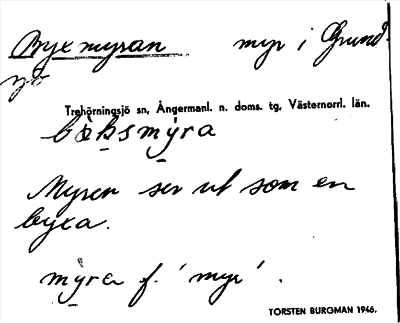 Byxmyran myr i Grund-
sjö
Trehörningsjö sn, Ångermanl. n. doms. tg, Västernorrl. län.
Myren ser ut som en
byxa.
myra f. 'myr'.
TORSTEN BURGMAN 1946.